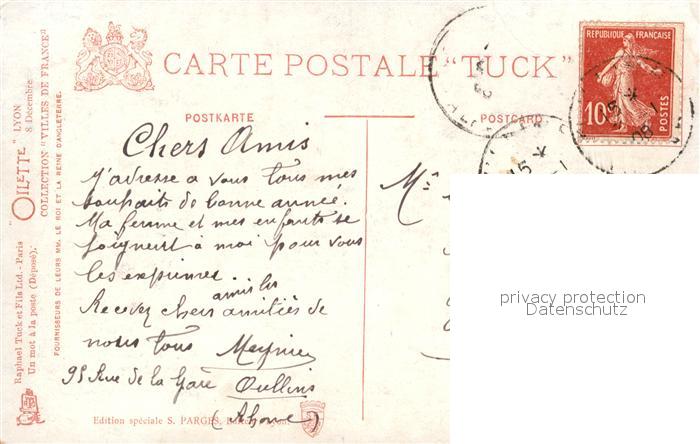 CARTE POSTALE "TUCK"
POSTKARTE
POSTCARD
RÉPUBLIQUE FRANÇAISE
10
POSTES
15
08
Chers Amis
J'adresse a vous tous mes
souhaits de bonne année.
Ma femme et mes enfants se
joignent à moi pour vous
les exprimer.
Recevez chers amis les amitiés de
nous tous Meynier
95 Rue de la Gare Oullins
(Rhone)
Edition spéciale S. FARGES,
"OILETTE" LYON
8 Décembre
COLLECTION "VILLES DE FRANCE"
Raphael Tuck et Fils Ltd. - Paris
Un mot à la poste (Déposé).
FOURNISSEURS DE LEURS MM. LE ROI ET LA REINE D'ANGLETERRE.
privacy protection
Datenschutz